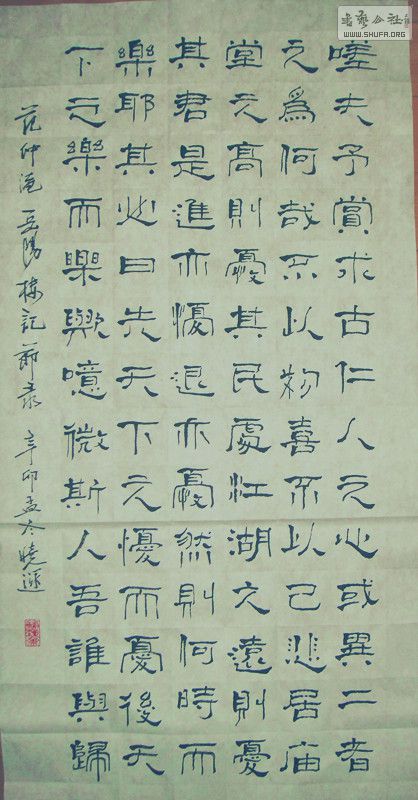 嗟夫予賞求古仁人之心或異二者
之爲何哉不以物喜不以己悲居庙
堂之高則憂其民處江湖之遠則憂
其君是進亦懮退亦憂然則何時而
樂耶其必曰先天下之懮而憂後天
下之樂而樂歟噫微斯人吾誰與歸
范仲淹岳陽楼記節录辛卯孟冬曉遊
書艺公社
WWW.SHUFA.ORG